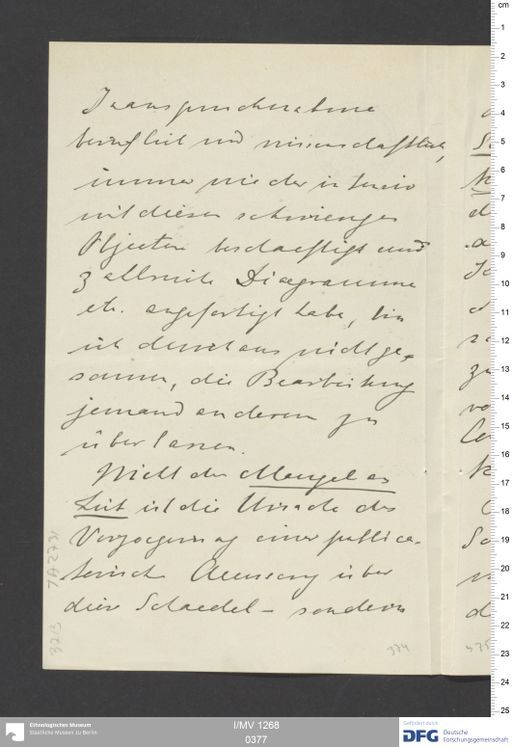 Inanspruchnahme
beruflich und wissenschaftlich,
immer wieder intensiv
mit diesen schwierigen
Objecten beschaeftigt und
zallreiche Diagramme
etc. angefertigt habe, bin
ich durchaus nicht ge-
sonnen, die Bearbeitung
jemand anderem zu
überlassen.
Nicht der Mangel an
Zeit ist die Ursache der
Verzoegerung einer publica-
torischen Aeusserung über
diese Schaedel – sondern
374
375
I/MV 1268
0377
Ethnologisches Museum
Staatliche Museen zu Berlin
Gefördert durch
DFG Deutsche
Forschungsgemeinschaft
cm
1
2
3
4
5
6
7
8
9
10
11
12
13
14
15
16
17
18
19
20
21
22
23
24
25